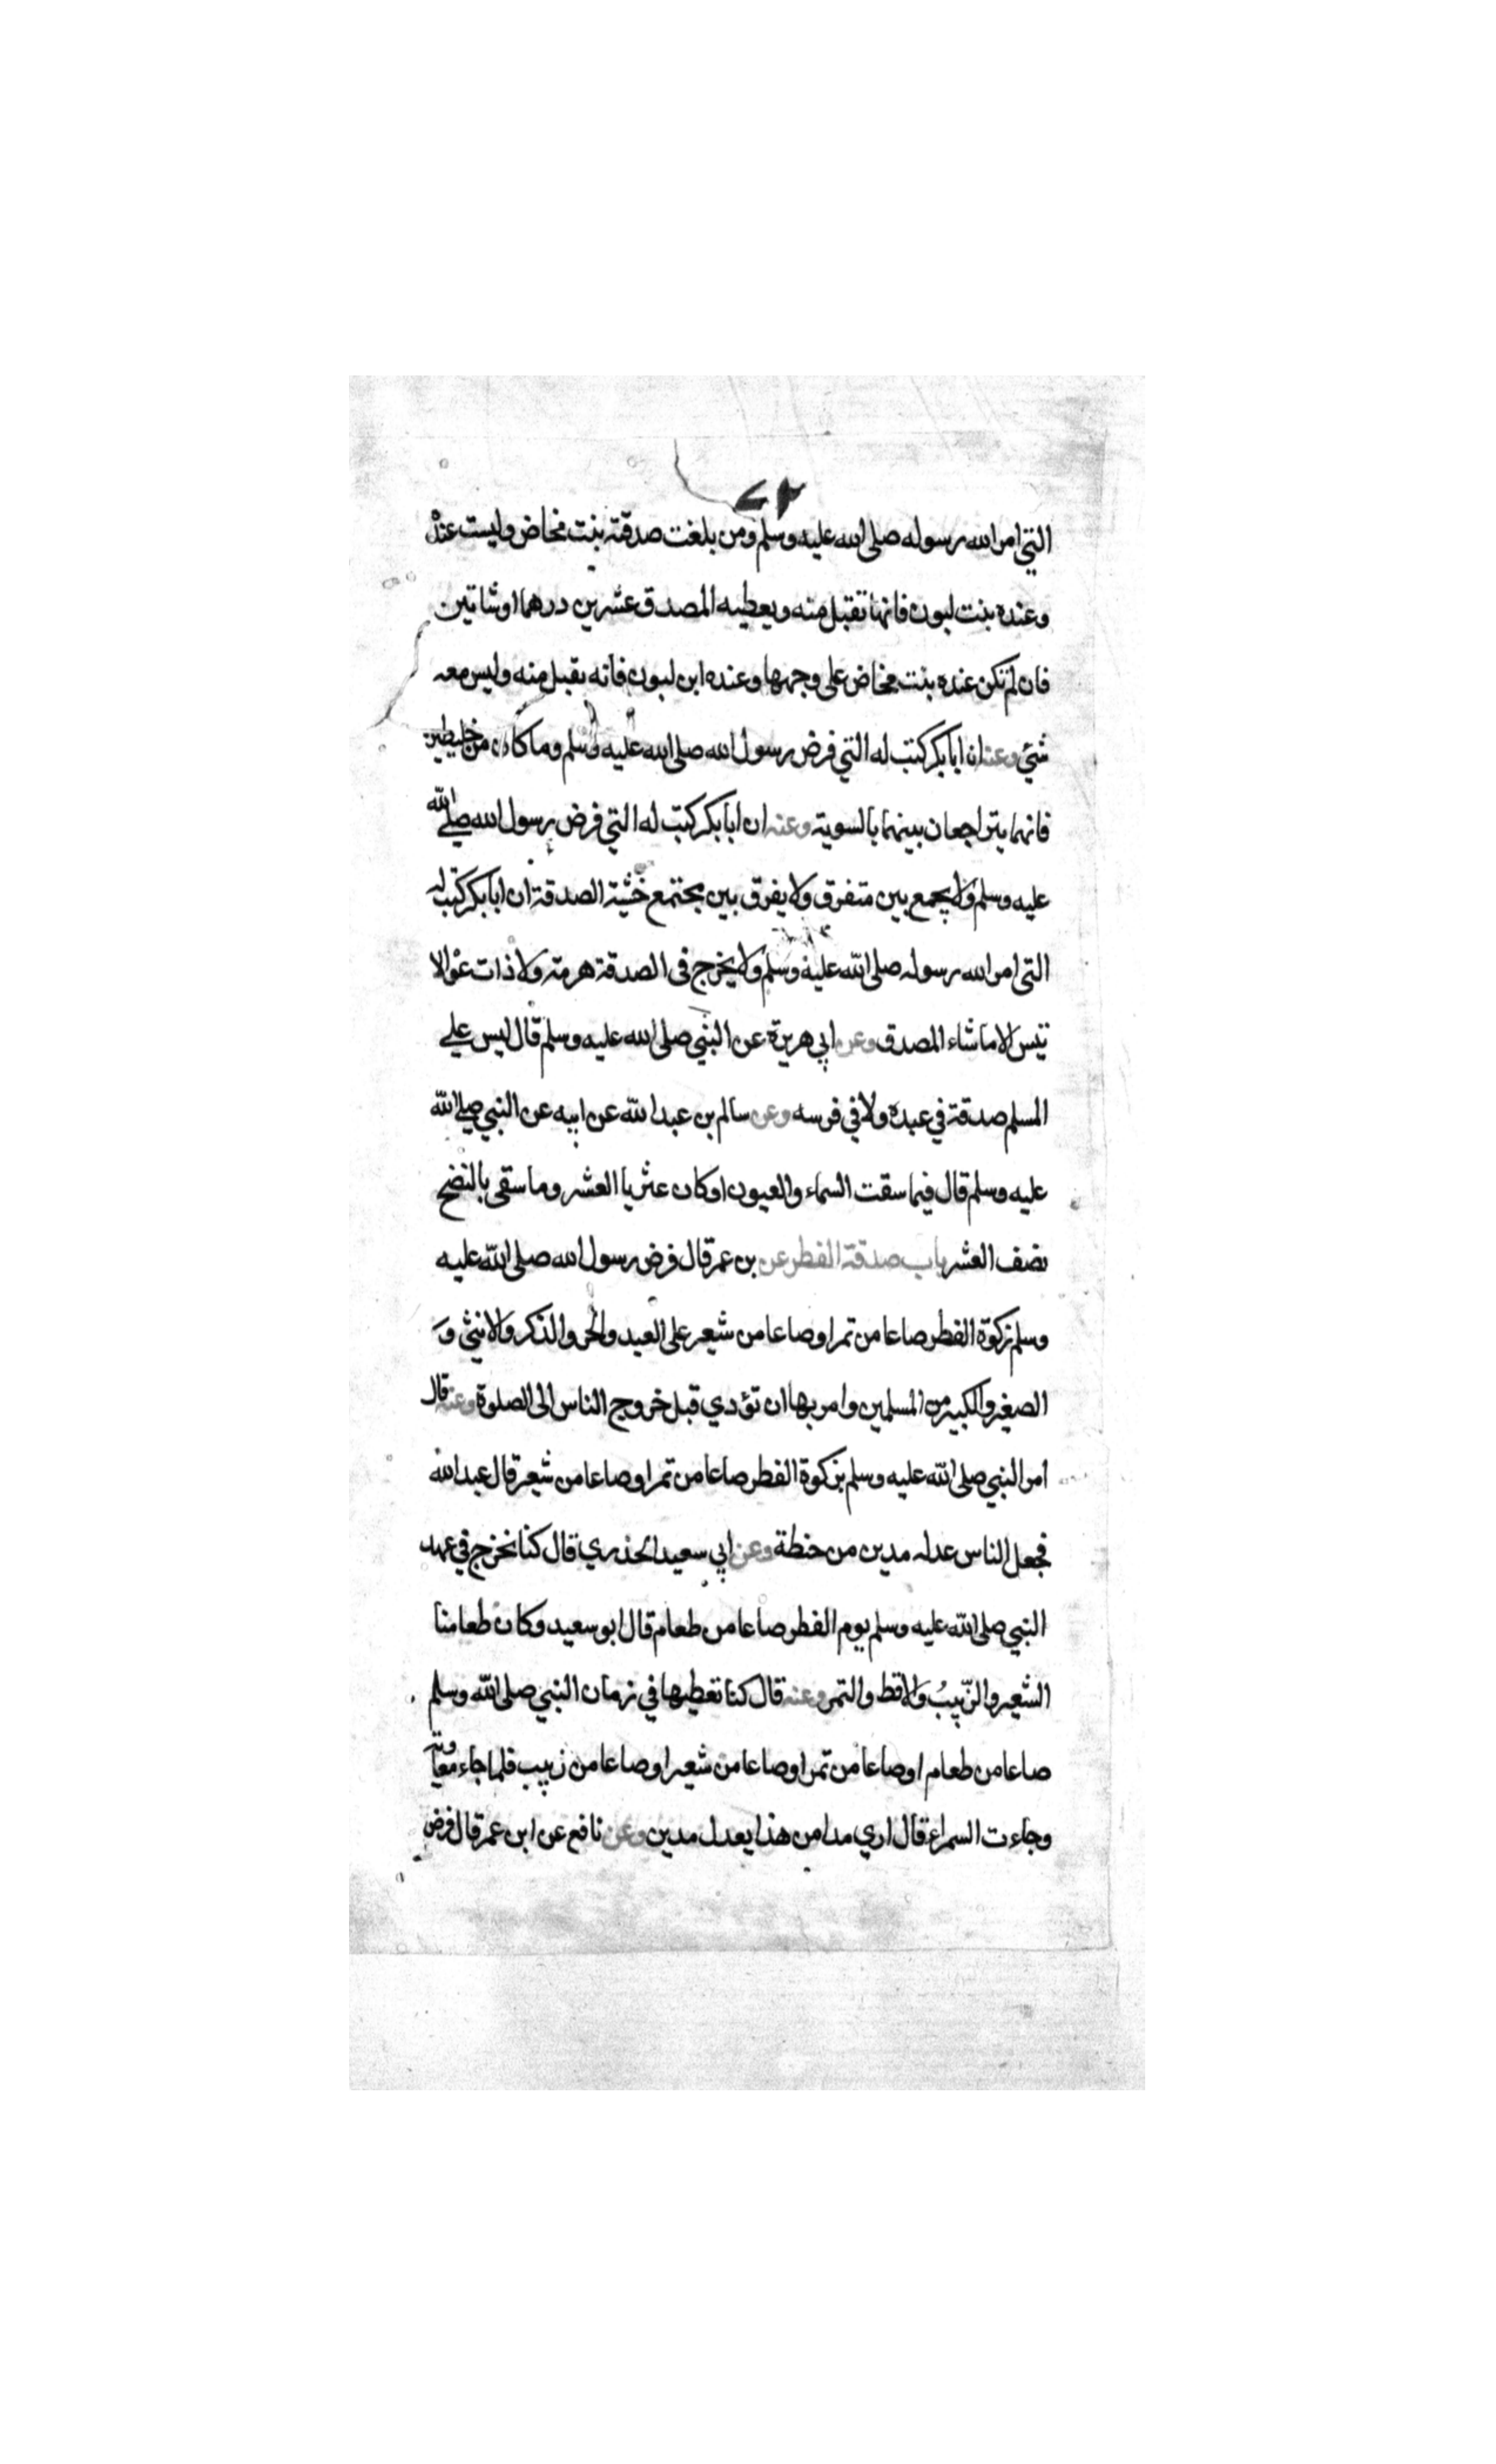 التي امر الله رسوله صلى الله عليه وسلم ومن بلغت صدقته بنت مخاض وليست عنده
وعنده بنت لبون فانها تقبل منه ويعطيه المصدق عشرين درهما اوشاتين
فان لم تكن عنده بنت مخاض على وجهها وعنده ابن لبون فانه يقبل منه وليس معه
شئ وعنه ان ابا بكر كتب له التي فرض رسول الله صلى الله عليه وسلم وما كان من خليطين
فانهما يتراجعان بينهما بالسوية وعنه ان ابا بكر كتب له التي فرض رسول الله صلى الله
عليه وسلم ولا يجمع بين متفرق ولا يفرق بين مجتمع خشية الصدقة ان ابا بكر كتب له
التي امر الله رسوله صلى الله عليه وسلم ولا يخرج في الصدقة هرمة ولا ذات عوار ولا
تيس الا ما شاء المصدق وعن ابي هريرة عن النبي صلى الله عليه وسلم قال ليس على
المسلم صدقة في عبده ولا في فرسه وعن سالم بن عبد الله عن ابيه عن النبي صلى الله
عليه وسلم قال فيما سقت السماء والعيون او كان عثريا العشر وما سقى بالنضح
نصف العشر باب صدقة الفطر عن بن عمر قال فرض رسول الله صلى الله عليه
وسلم زكوة الفطر صاعا من تمر او صاعا من شعير على العبد والحر والذكر والانثى و
الصغير والكبير من المسلمين وامر بها ان تؤدي قبل خروج الناس الى الصلوة وعنه قال
امر النبي صلى الله عليه وسلم بزكوة الفطر صاعا من تمر او صاعا من شعير قال عبد الله
فجعل الناس عدله مدين من حنطة وعن ابي سعيد الخذري قال كنا نخرج في عهد
النبي صلى الله عليه وسلم يوم الفطر صاعا من طعام قال ابو سعيد وكان طعامنا
الشعير والزبيب والاقط والتمر وعنه قال كنا نعطيها في زمان النبي صلى الله وسلم
صاعا من طعام او صاعا من تمر او صاعا من شعير او صاعا من زبيب فلما جاء معاوية
وجاءت السمراء قال اري مدا من هذا يعدل مدين وعن نافع عن ابن عمر قال فرض